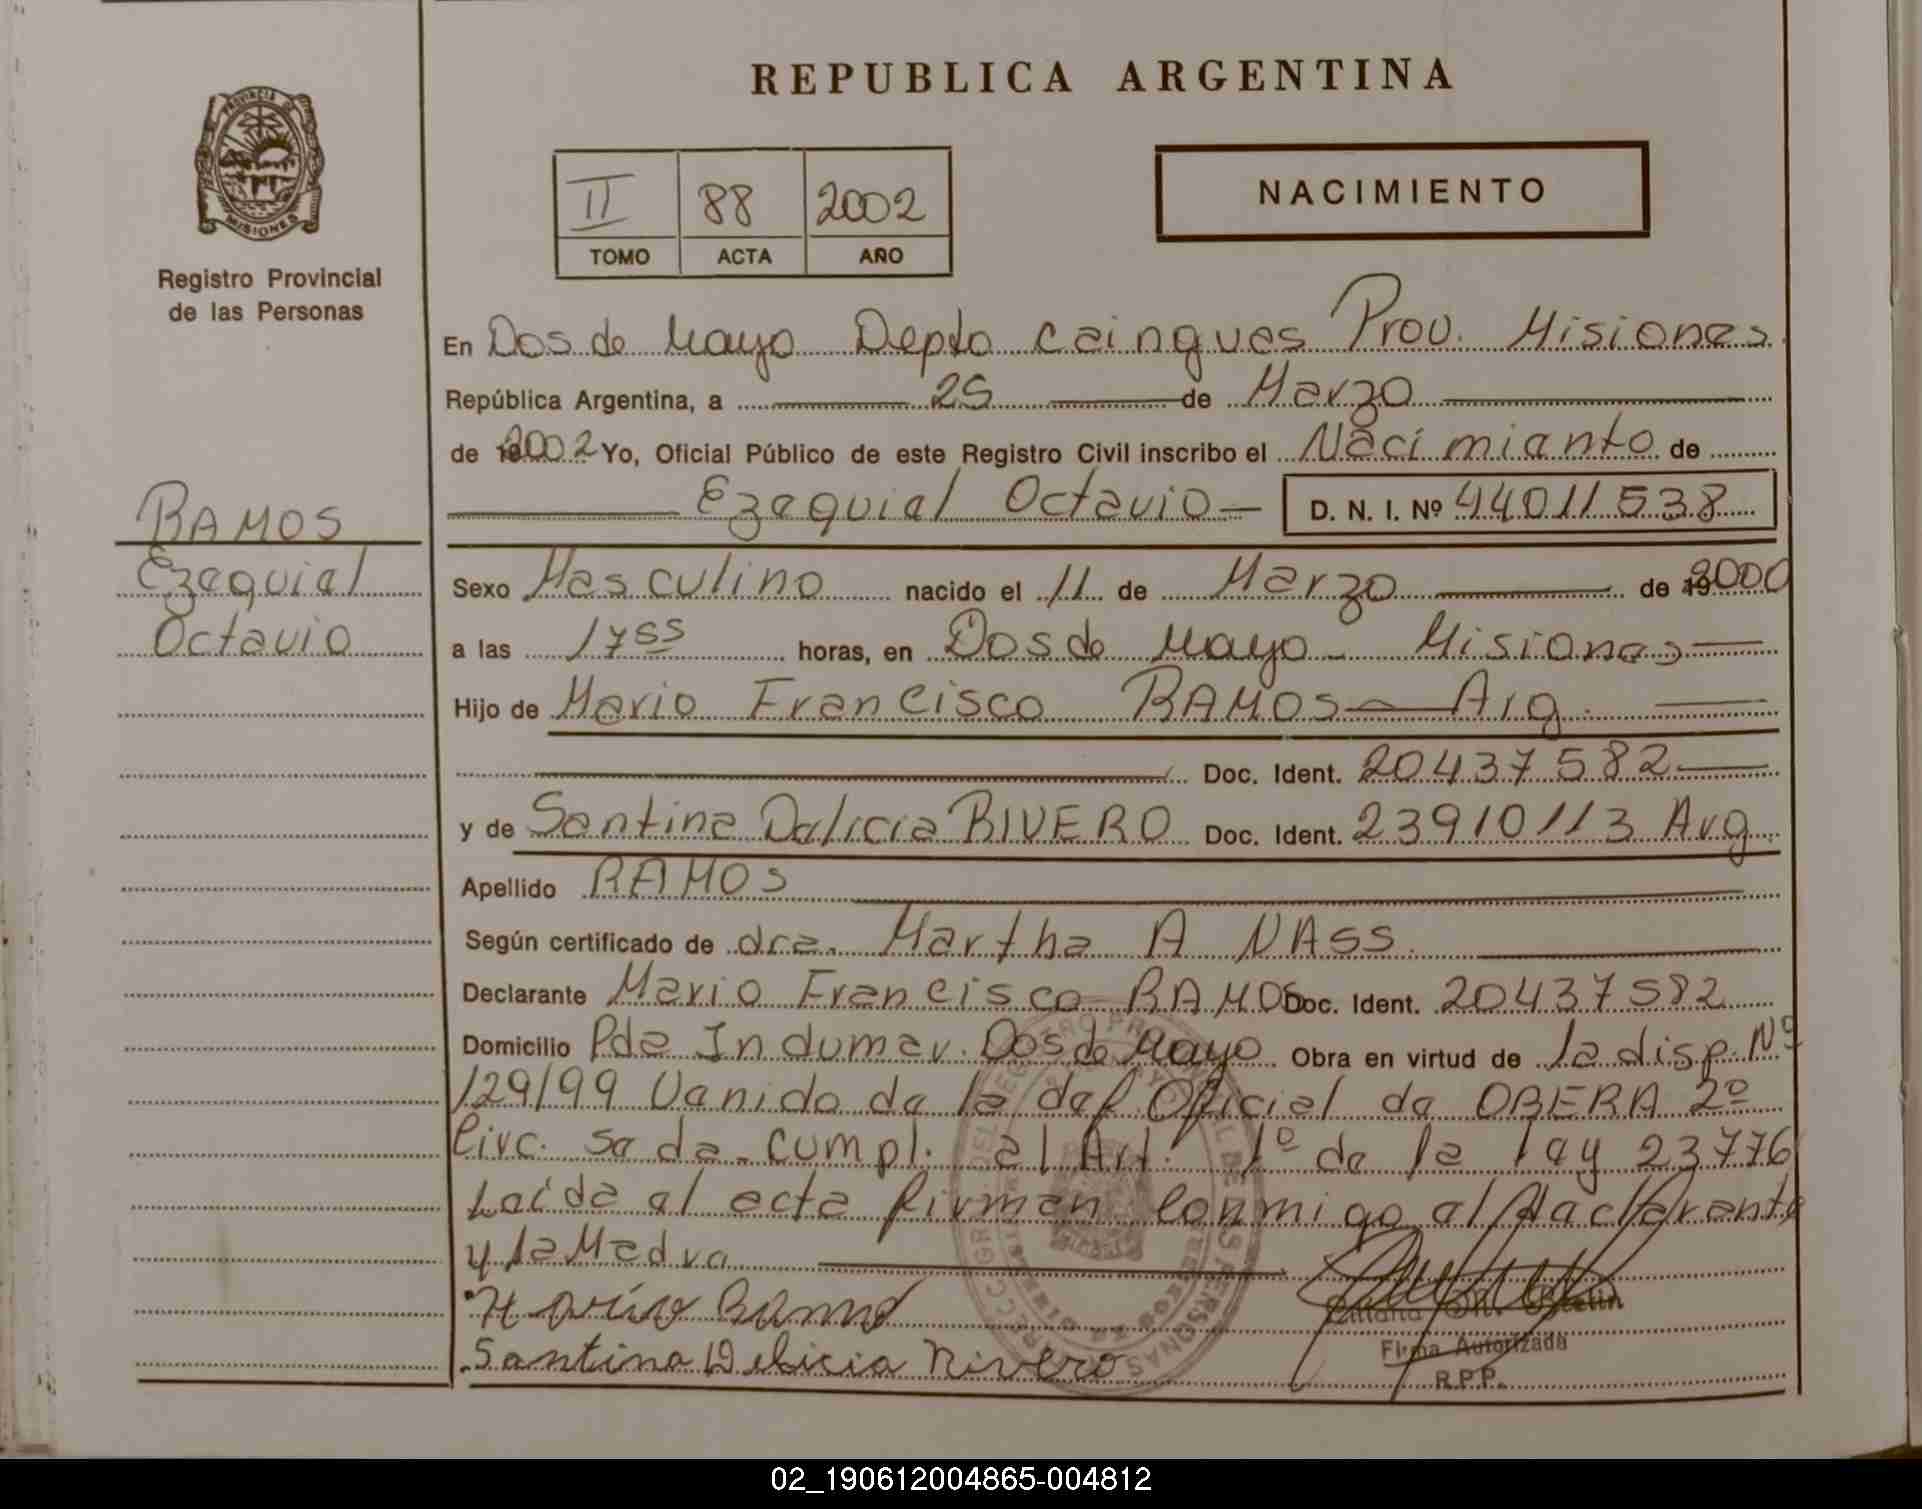 REPUBLICA ARGENTINA
PROVINCIA DE
MISIONES
Registro Provincial
de las Personas
II 88 2002
TOMO ACTA AÑO
NACIMIENTO
En Dos de Mayo Depto Cainguas Prov. Misiones
República Argentina, a 25 de Marzo
de 2002 Yo, Oficial Público de este Registro Civil inscribo el Nacimiento de
Ezequiel Octavio D. N. I. Nº 44011538
RAMOS
Ezequiel
Octavio
Sexo Masculino nacido el 11 de Marzo de 192000
a las 17 55 horas, en Dos de Mayo - Misiones
Hijo de Mario Francisco RAMOS Arg.
Doc. Ident. 20437582
y de Santina Delicia RIVERO Doc. Ident. 23910113 Arg.
Apellido RAMOS
Según certificado de dra. Martha A NASS.
Declarante Mario Francisco RAMOS Doc. Ident. 20437582
Domicilio Pda Indumar. Dos de Mayo Obra en virtud de la disp. Nº
129/99 Venido de la def Oficial de OBERA 2º
Circ. se da cumpl. al Art. 1º de la ley 23776
Leída el acta firman conmigo el declarante
y la Madre
Mario Ramos
Santina Delicia Rivero
Firma Autorizada
R.P.P.
02_190612004865-004812